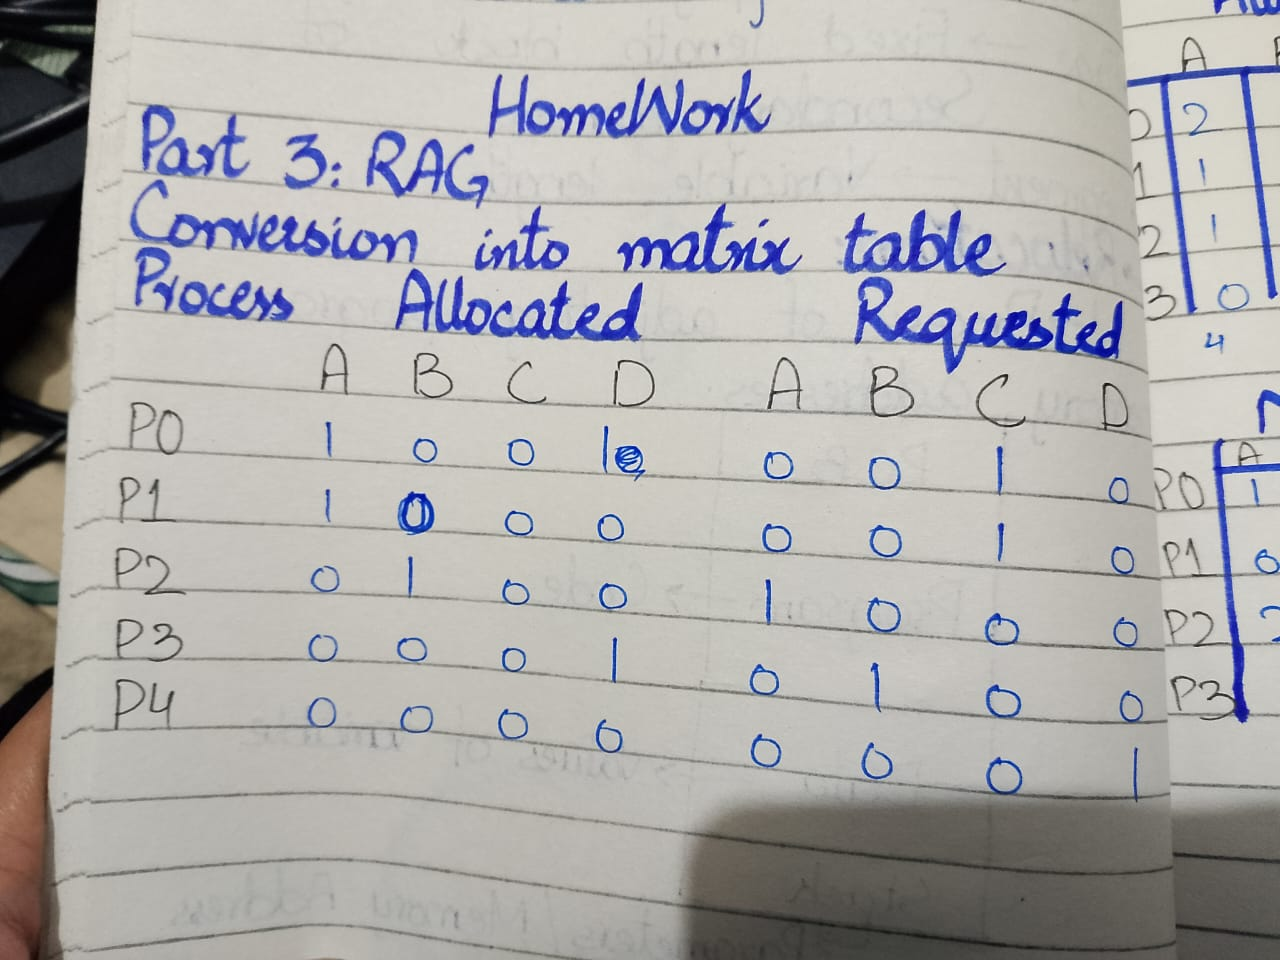 HomeWork
Part 3: RAG
Conversion into matrix table
Process Allocated Requested
A B C D A B C D
P0 1 0 0 1 0 0 1 0
P1 1 0 0 0 0 0 1 0
P2 0 1 0 0 1 0 0 0
P3 0 0 0 1 0 1 0 0
P4 0 0 0 0 0 0 0 1
A
2
1 1
2 1
3 0
4
A
P0 1
P1 0
P2 2
P3